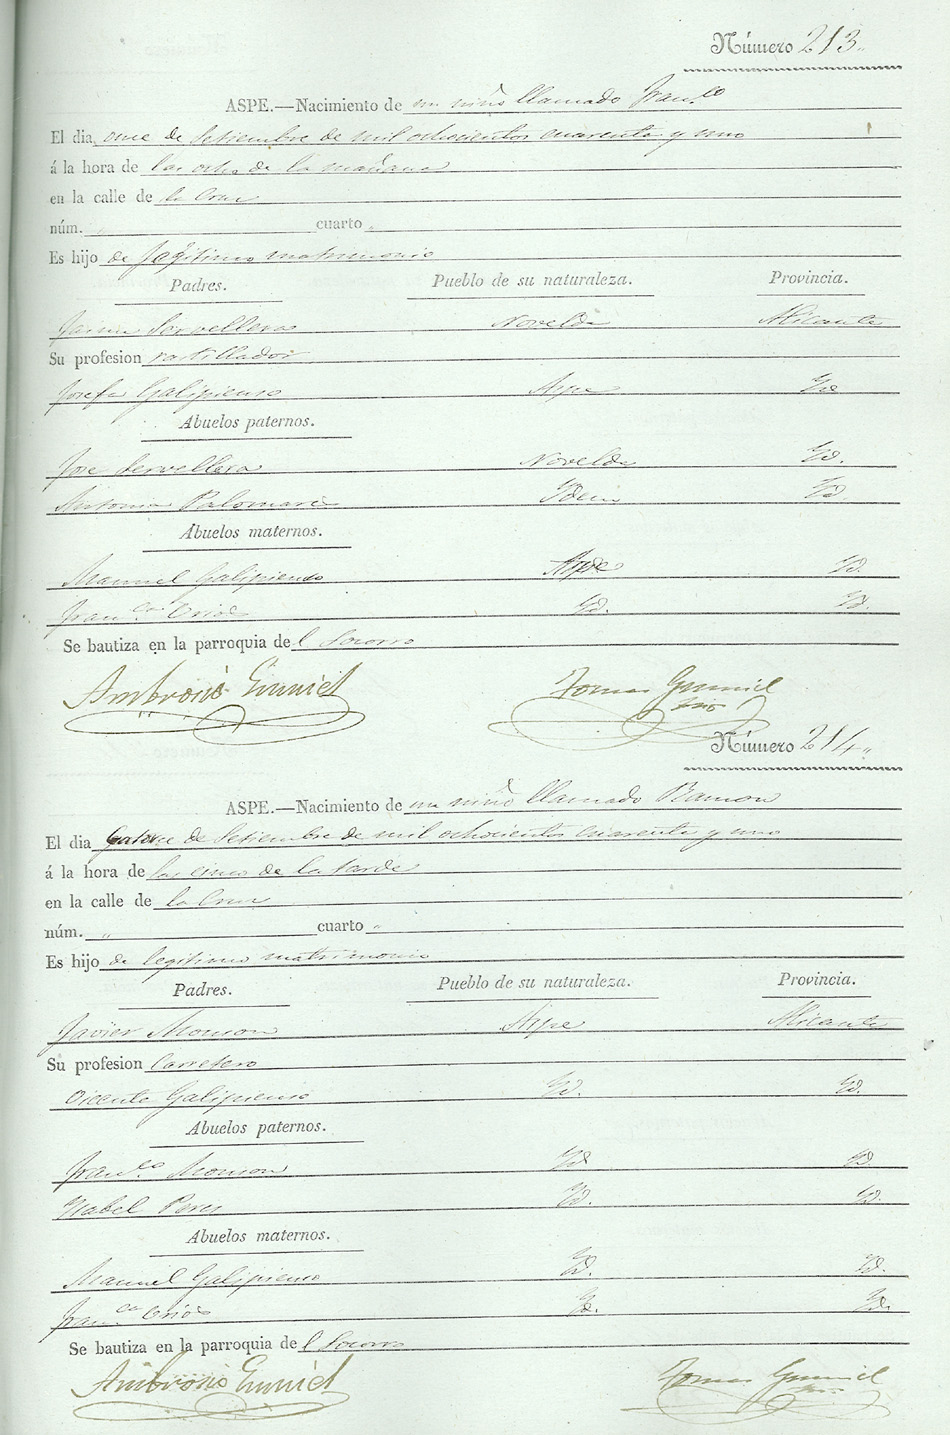 Número 213.
ASPE.—Nacimiento de un niño llamado Fran.co
El dia once de Setiembre de mil ochocientos cuarenta y uno
á la hora de las ocho de la mañana
en la calle de la Cruz
núm. „ cuarto „
Es hijo de legitimo matrimonio
Padres. Pueblo de su naturaleza. Provincia.
Jaime Novelda Alicante
Su profesion rastillador
Josefa Galipienso Aspe Yd.
Abuelos paternos.
Jose Novelda Yd.
Antonia Palomares Ydem Yd.
Abuelos maternos.
Manuel Galipienso Aspe Yd.
Fran.ca Yd. Yd.
Se bautiza en la parroquia del Socorro
Ambrosio Tomas
Número 214.
ASPE.—Nacimiento de un niño llamado Ramon
El dia Catorce de Setiembre de mil ochocientos cuarenta y uno
á la hora de las cinco de la tarde
en la calle de la Cruz
núm. „ cuarto „
Es hijo de legitimo matrimonio
Padres. Pueblo de su naturaleza. Provincia.
Javier Monzon Aspe Alicante
Su profesion Carretero
Vicenta Galipienso Yd. Yd.
Abuelos paternos.
Fran.co Monzon Yd Yd.
Ysabel Peres Yd. Yd.
Abuelos maternos.
Manuel Galipienso Yd. Yd.
Fran.ca Yd. Yd.
Se bautiza en la parroquia del Socorro
Ambrosio Tomas